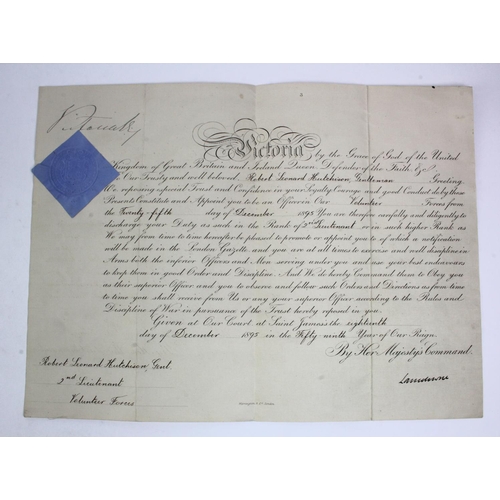 Victoria by the Grace of God of the United
Kingdom of Great Britain and Ireland Queen Defender of the Faith &c.
To Our Trusty and well beloved Robert Leonard Hutchison Gentleman Greeting
We reposing especial Trust and Confidence in your Loyalty Courage and good Conduct do by these
Presents Constitute and Appoint you to be an Officer in Our Volunteer Forces from
the Twenty-fifth day of December 1895 You are therefore carefully and diligently to
discharge your Duty as such in the Rank of 2nd Lieutenant or in such higher Rank as
We may from time to time hereafter be pleased to promote or appoint you to of which a notification
will be made in the London Gazette and you are at all times to exercise and well discipline in
Arms both the inferior Officers and Men serving under you and use your best endeavours
to keep them in good Order and Discipline. And We do hereby Command them to Obey you
as their superior Officer and you to observe and follow such Orders and Directions as from time
to time you shall receive from Us or any your superior Officer according to the Rules and
Discipline of War in pursuance of the Trust hereby reposed in you.
Given at Our Court at Saint James's the eighteenth
day of December 1895 in the Fifty-ninth Year of Our Reign.
By Her Majesty's Command.
Robert Leonard Hutchison Gent.
2nd Lieutenant
Volunteer Forces
Lansdowne